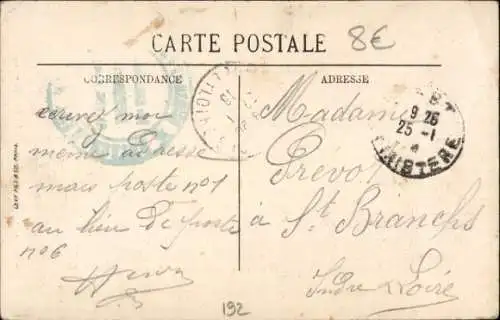 CARTE POSTALE
8€
CORRESPONDANCE
ADRESSE
écrivez moi
même adresse
mais poste n°1
au lieu de poste
n°6
Madame
Prévot
à St Branchs
Indre & Loire
9 26
25 - 1
FINISTERE
LEVY FILS & CIE. PARIS
192